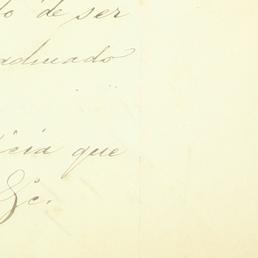 do de ser
aduado
icia que
&c.